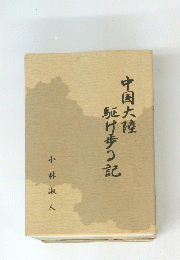 中国大陸
駆け歩る記
小林淑人